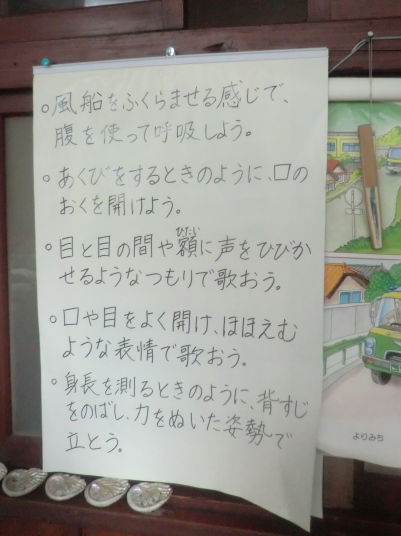 ○風船をふくらませる感じで、
腹を使って呼吸しよう。
○あくびをするときのように、口の
おくを開けよう。
○目と目の間や額に声をひびか
ひたい
せるようなつもりで歌おう。
○口や目をよく開け、ほほえむ
ような表情で歌おう。
○身長を測るときのように、背すじ
をのばし、力をぬいた姿勢で
立とう。
よりみち